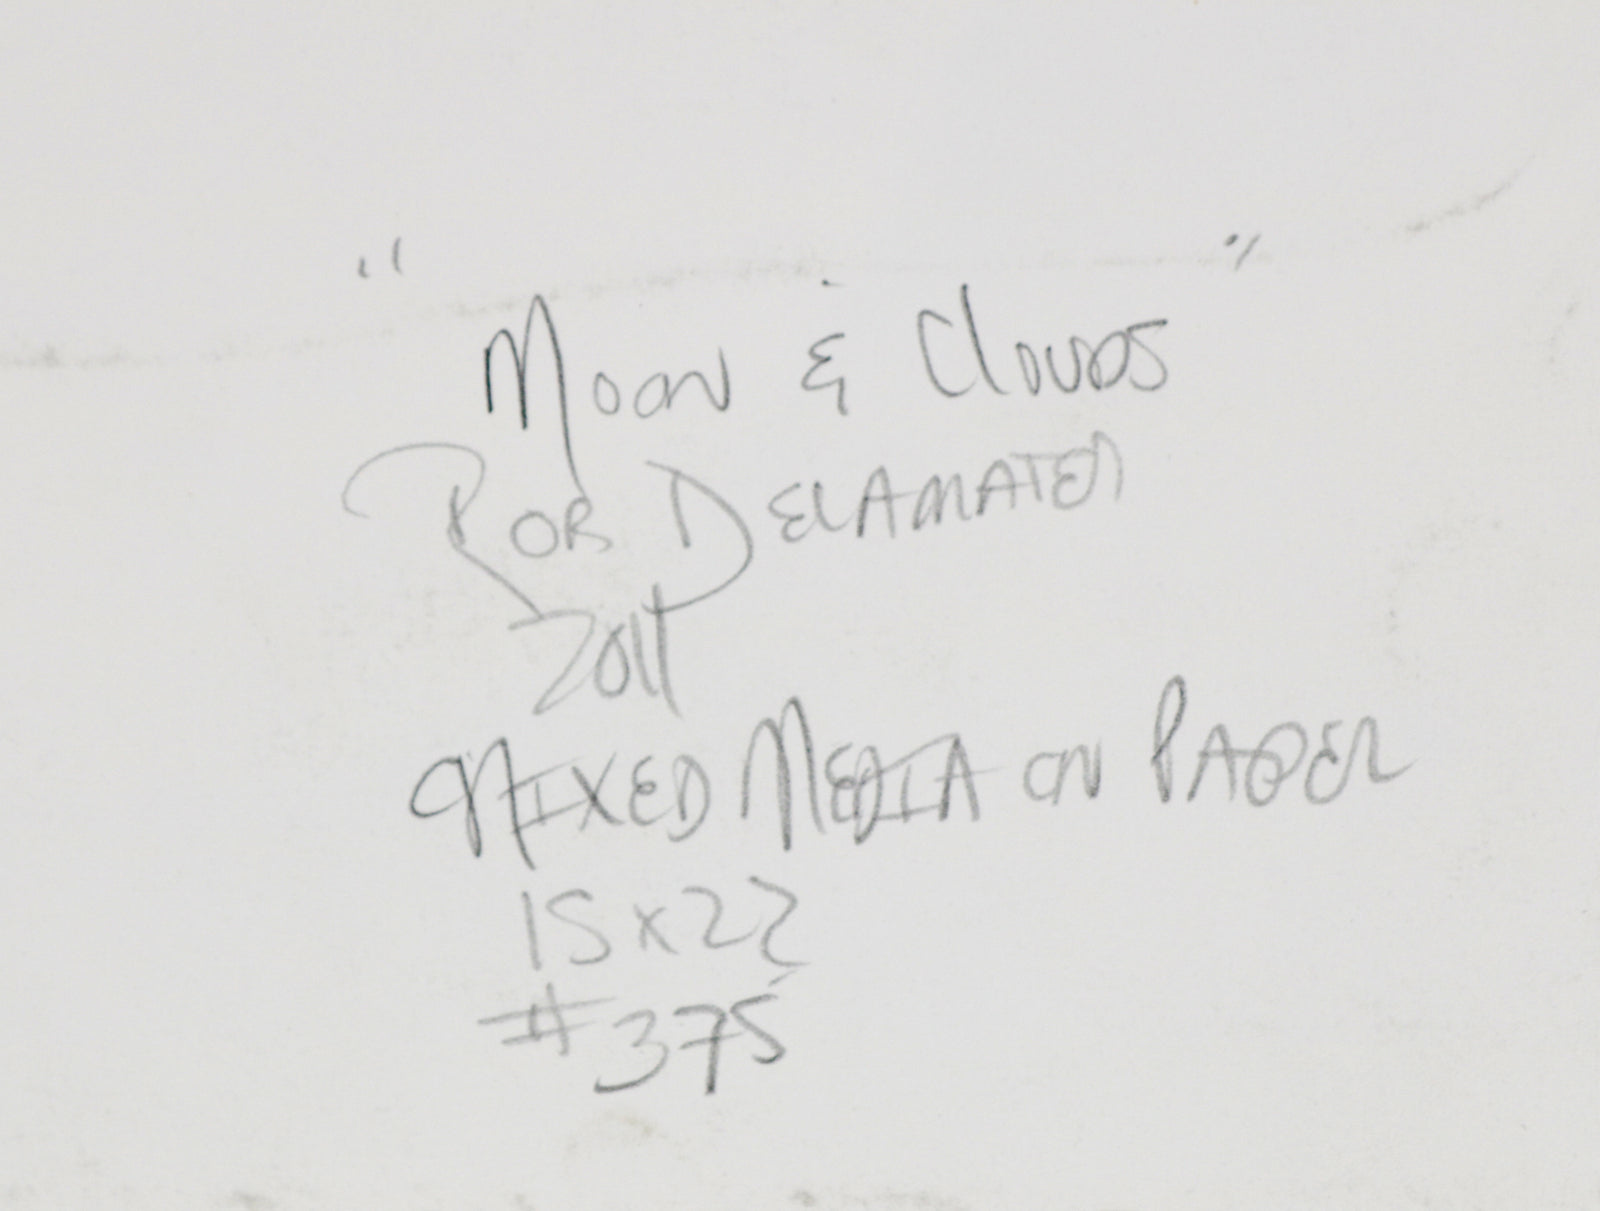 "Moon & Clouds"
ROB DELAMATER
2011
MIXED MEDIA ON PAPER
15x22
#375